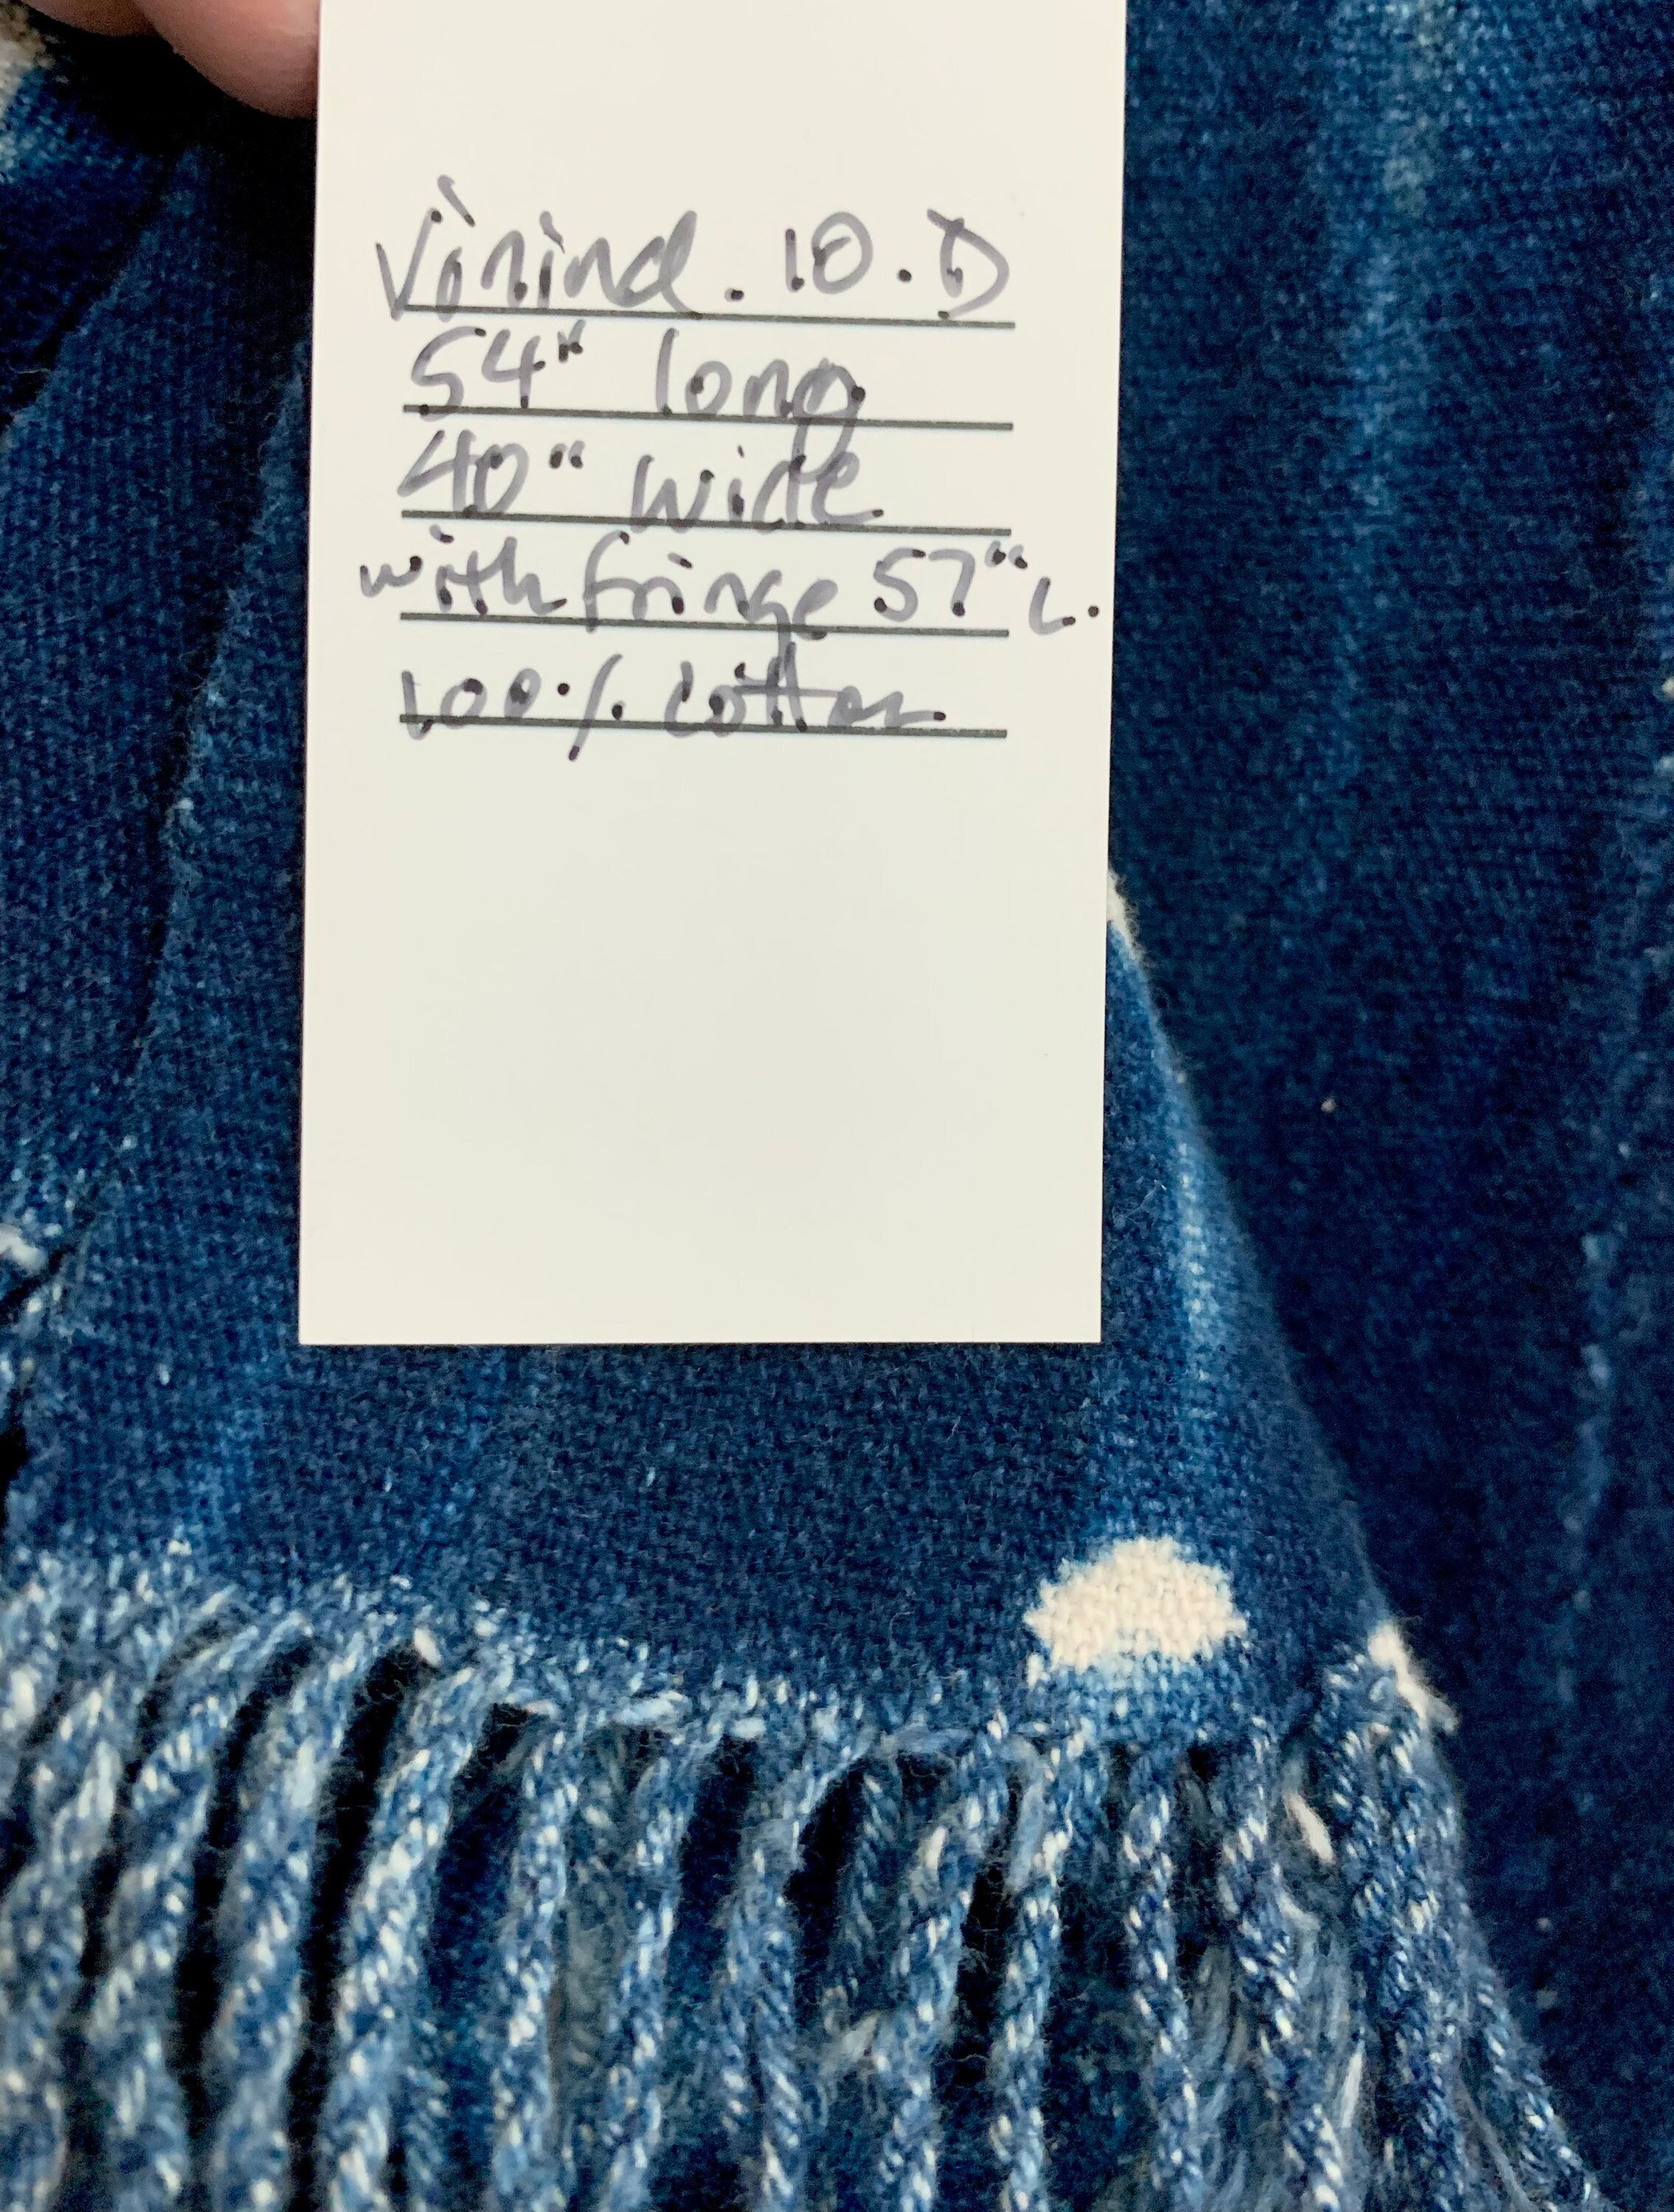 Vinind. 10. D
54" long
40" wide
with fringe 57" L.
100% cotton